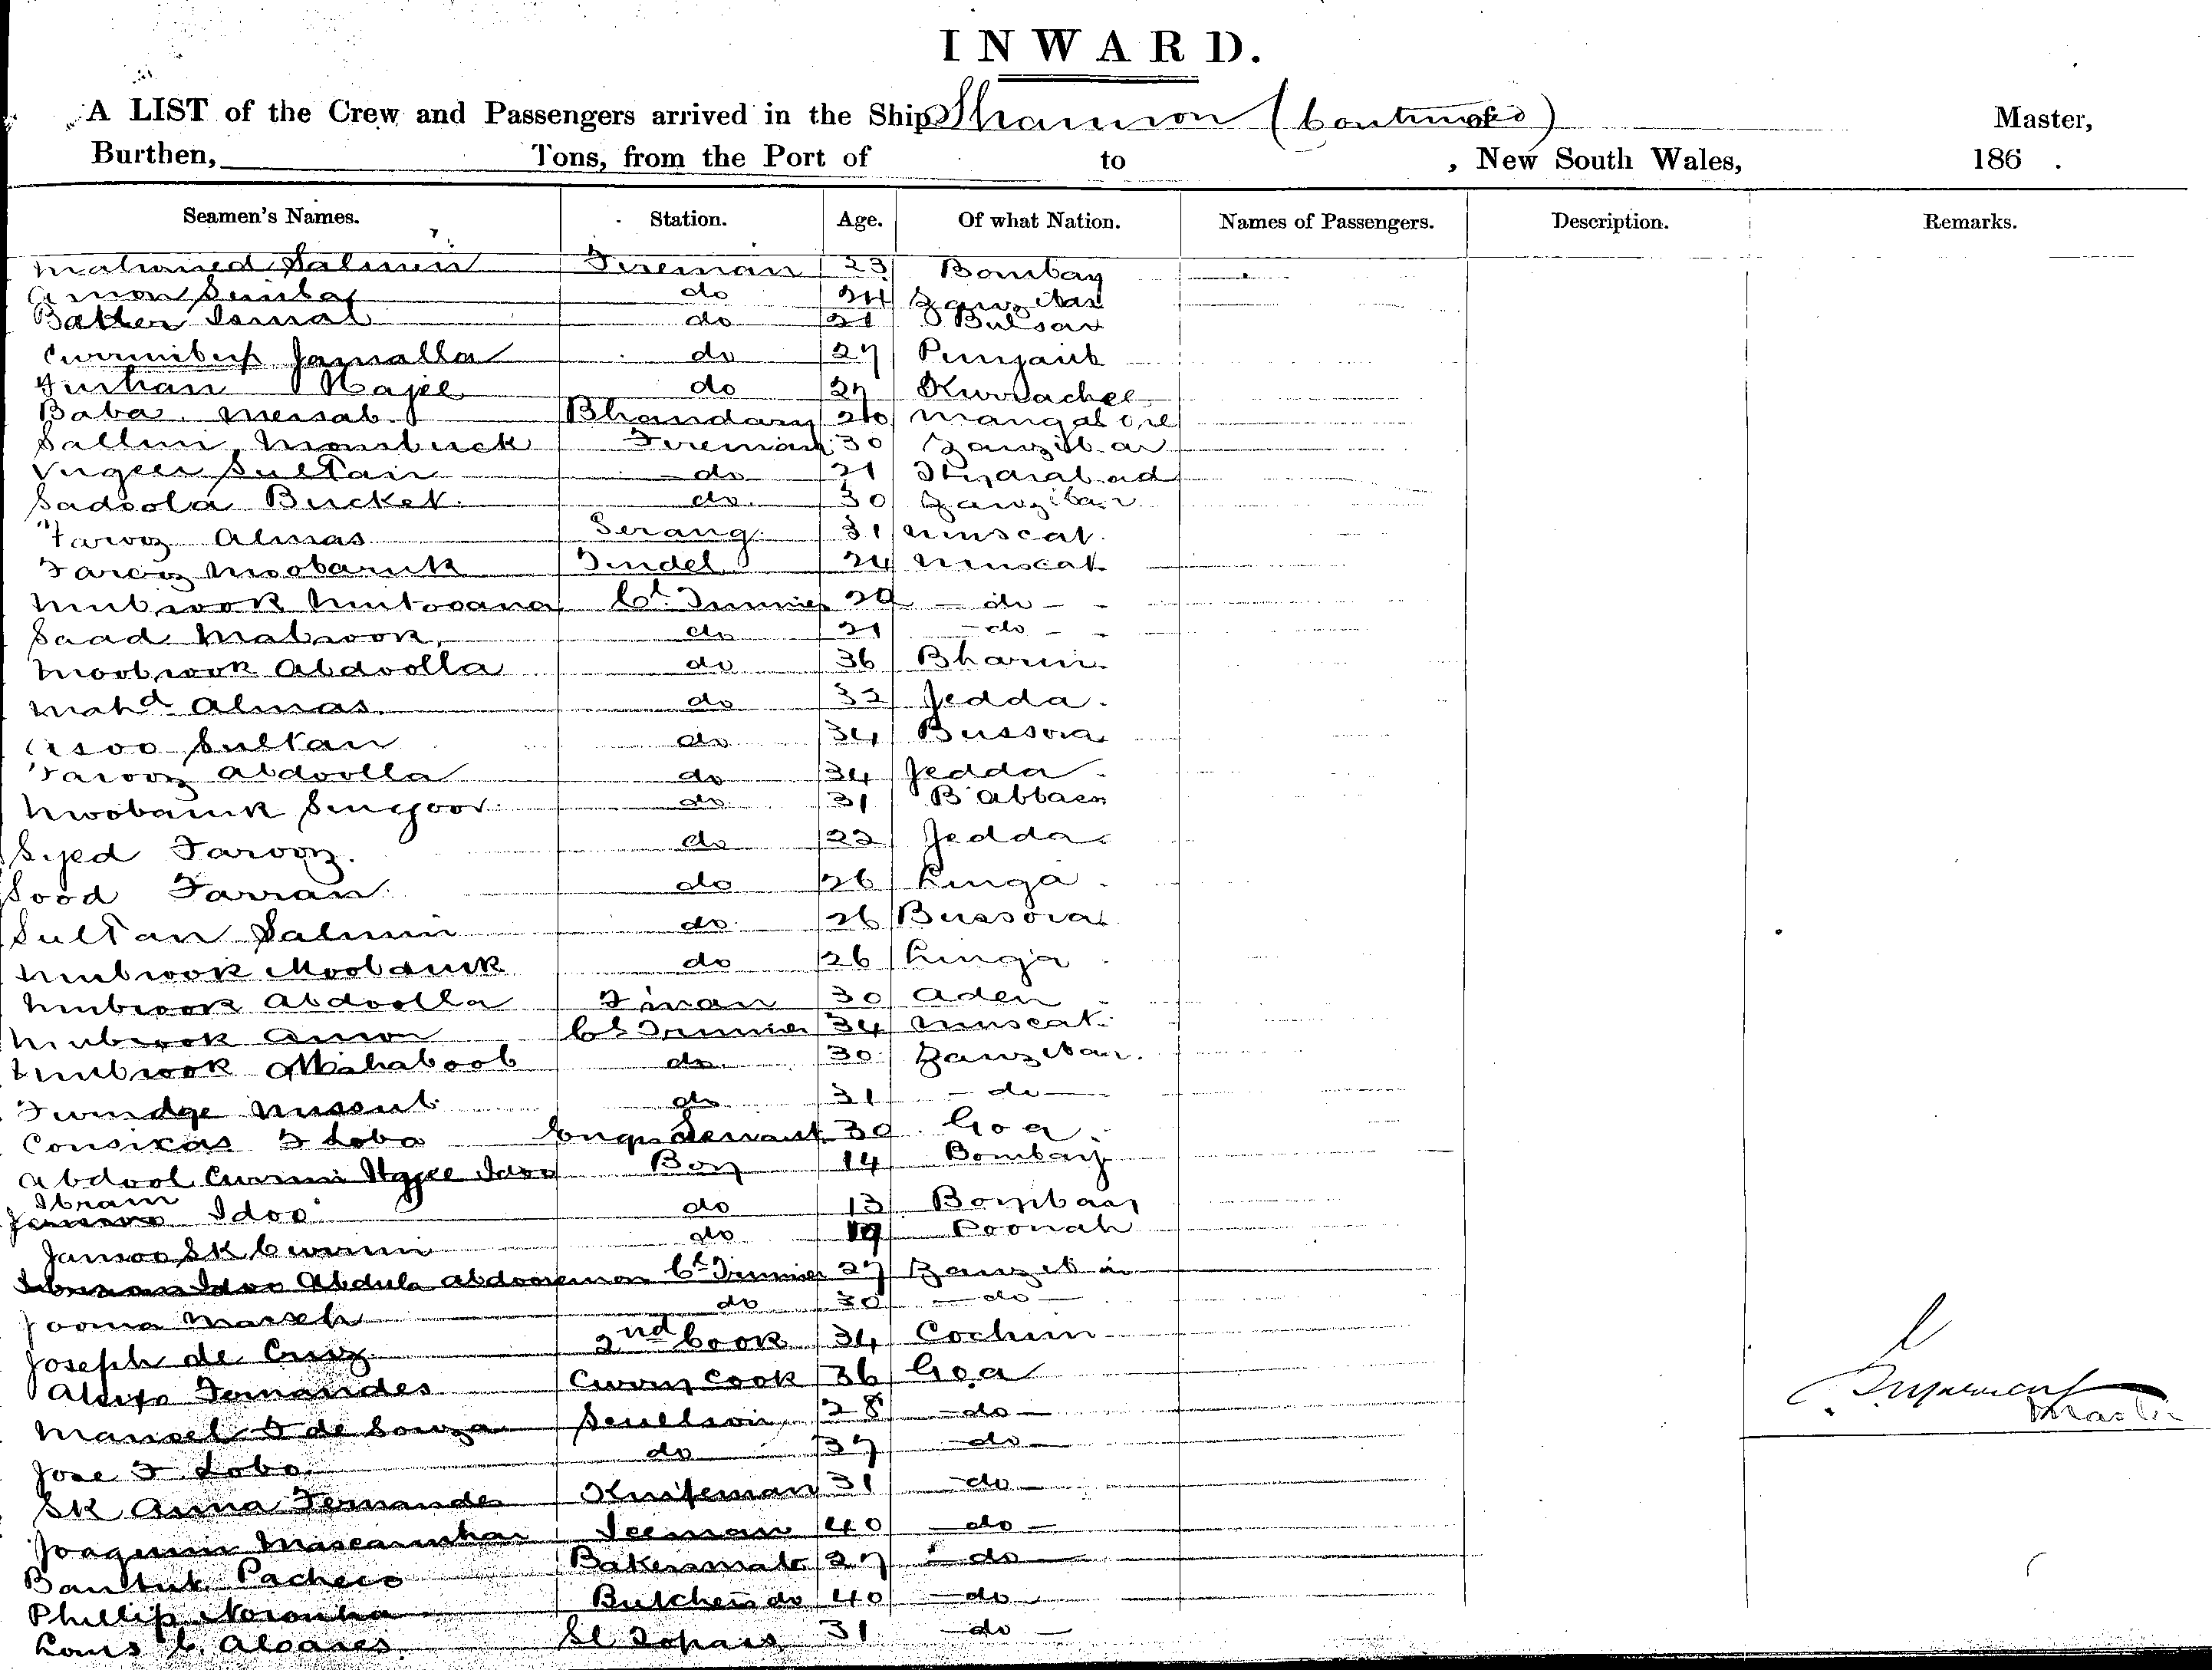 INWARD.
A LIST of the Crew and Passengers arrived in the Ship Shannon (Continued) Master,
Burthen, Tons, from the Port of to , New South Wales, 186 .
Seamen's Names. Station. Age. Of what Nation. Names of Passengers. Description. Remarks.
Mahomed Salmin Fireman 23 Bombay
Amon Sumbal do 24 Zanzibar
Bakker Ismal do 21 Bulsar
Currimbux Jamalla do 27 Punjaub
Furhan Hajee do 27 Kurrachee
Baba Meesab Bhandary 20 Mangalore
Sallim Monsbuck Fireman 30 Zanzibar
Vugeer Sultan do 21 Hydarabad
Sadoola Bucket do 30 Zanzibar
Farooz Almas Serang 31 Muscat
Farooz Moobaruk Tindel 24 Muscat
Mubrook Cl. Trimmer 29 — do —
Saad Mabrook do 21 — do —
Moobrook Abdoolla do 36 Bharin
Mahd Almas do 32 Jedda
Asoo Sultan do 34 Bussora
Farooz Abdoolla do 34 Jedda
Moobaruk Sungoor do 31 B Abbaes
Syed Farooz do 22 Jedda
Sood Farran do 26 Linga
Sultan Salmin do 26 Bussora
Mubrook Moobaruk do 26 Linga
Mubrook Abdoolla Fman 30 Aden
Mubrook Amon Cl Trimmer 34 Muscat
Mubrook Mahaboob do 30 Zanzibar
Nussub do 31 — do —
F Lobo Engrs Servant 30 Goa
Abdool Currim Hajee Idoo Boy 14 Bombay
Ibram
Idoo do 13 Bombay
Jamoo SK Currim do 19 Poonah
Abdula Cl Trimmer 27 Zanzibar
Jooma do 30 — do —
Joseph de Cruz 2nd Cook 34 Cochin
Aleixo Fernandes Curry Cook 36 Goa
Manoel F de Souza Scullion 28 — do —
Jose F Lobo do 37 — do —
SK Anna Fernandes Knifeman 31 — do —
Joaquim Mascarenhas Iceman 40 — do —
Pacheco Bakersmate 27 — do —
Phillip Noronha Butchers do 40 — do —
C. Aloares Sl Topass 31 — do —
Master